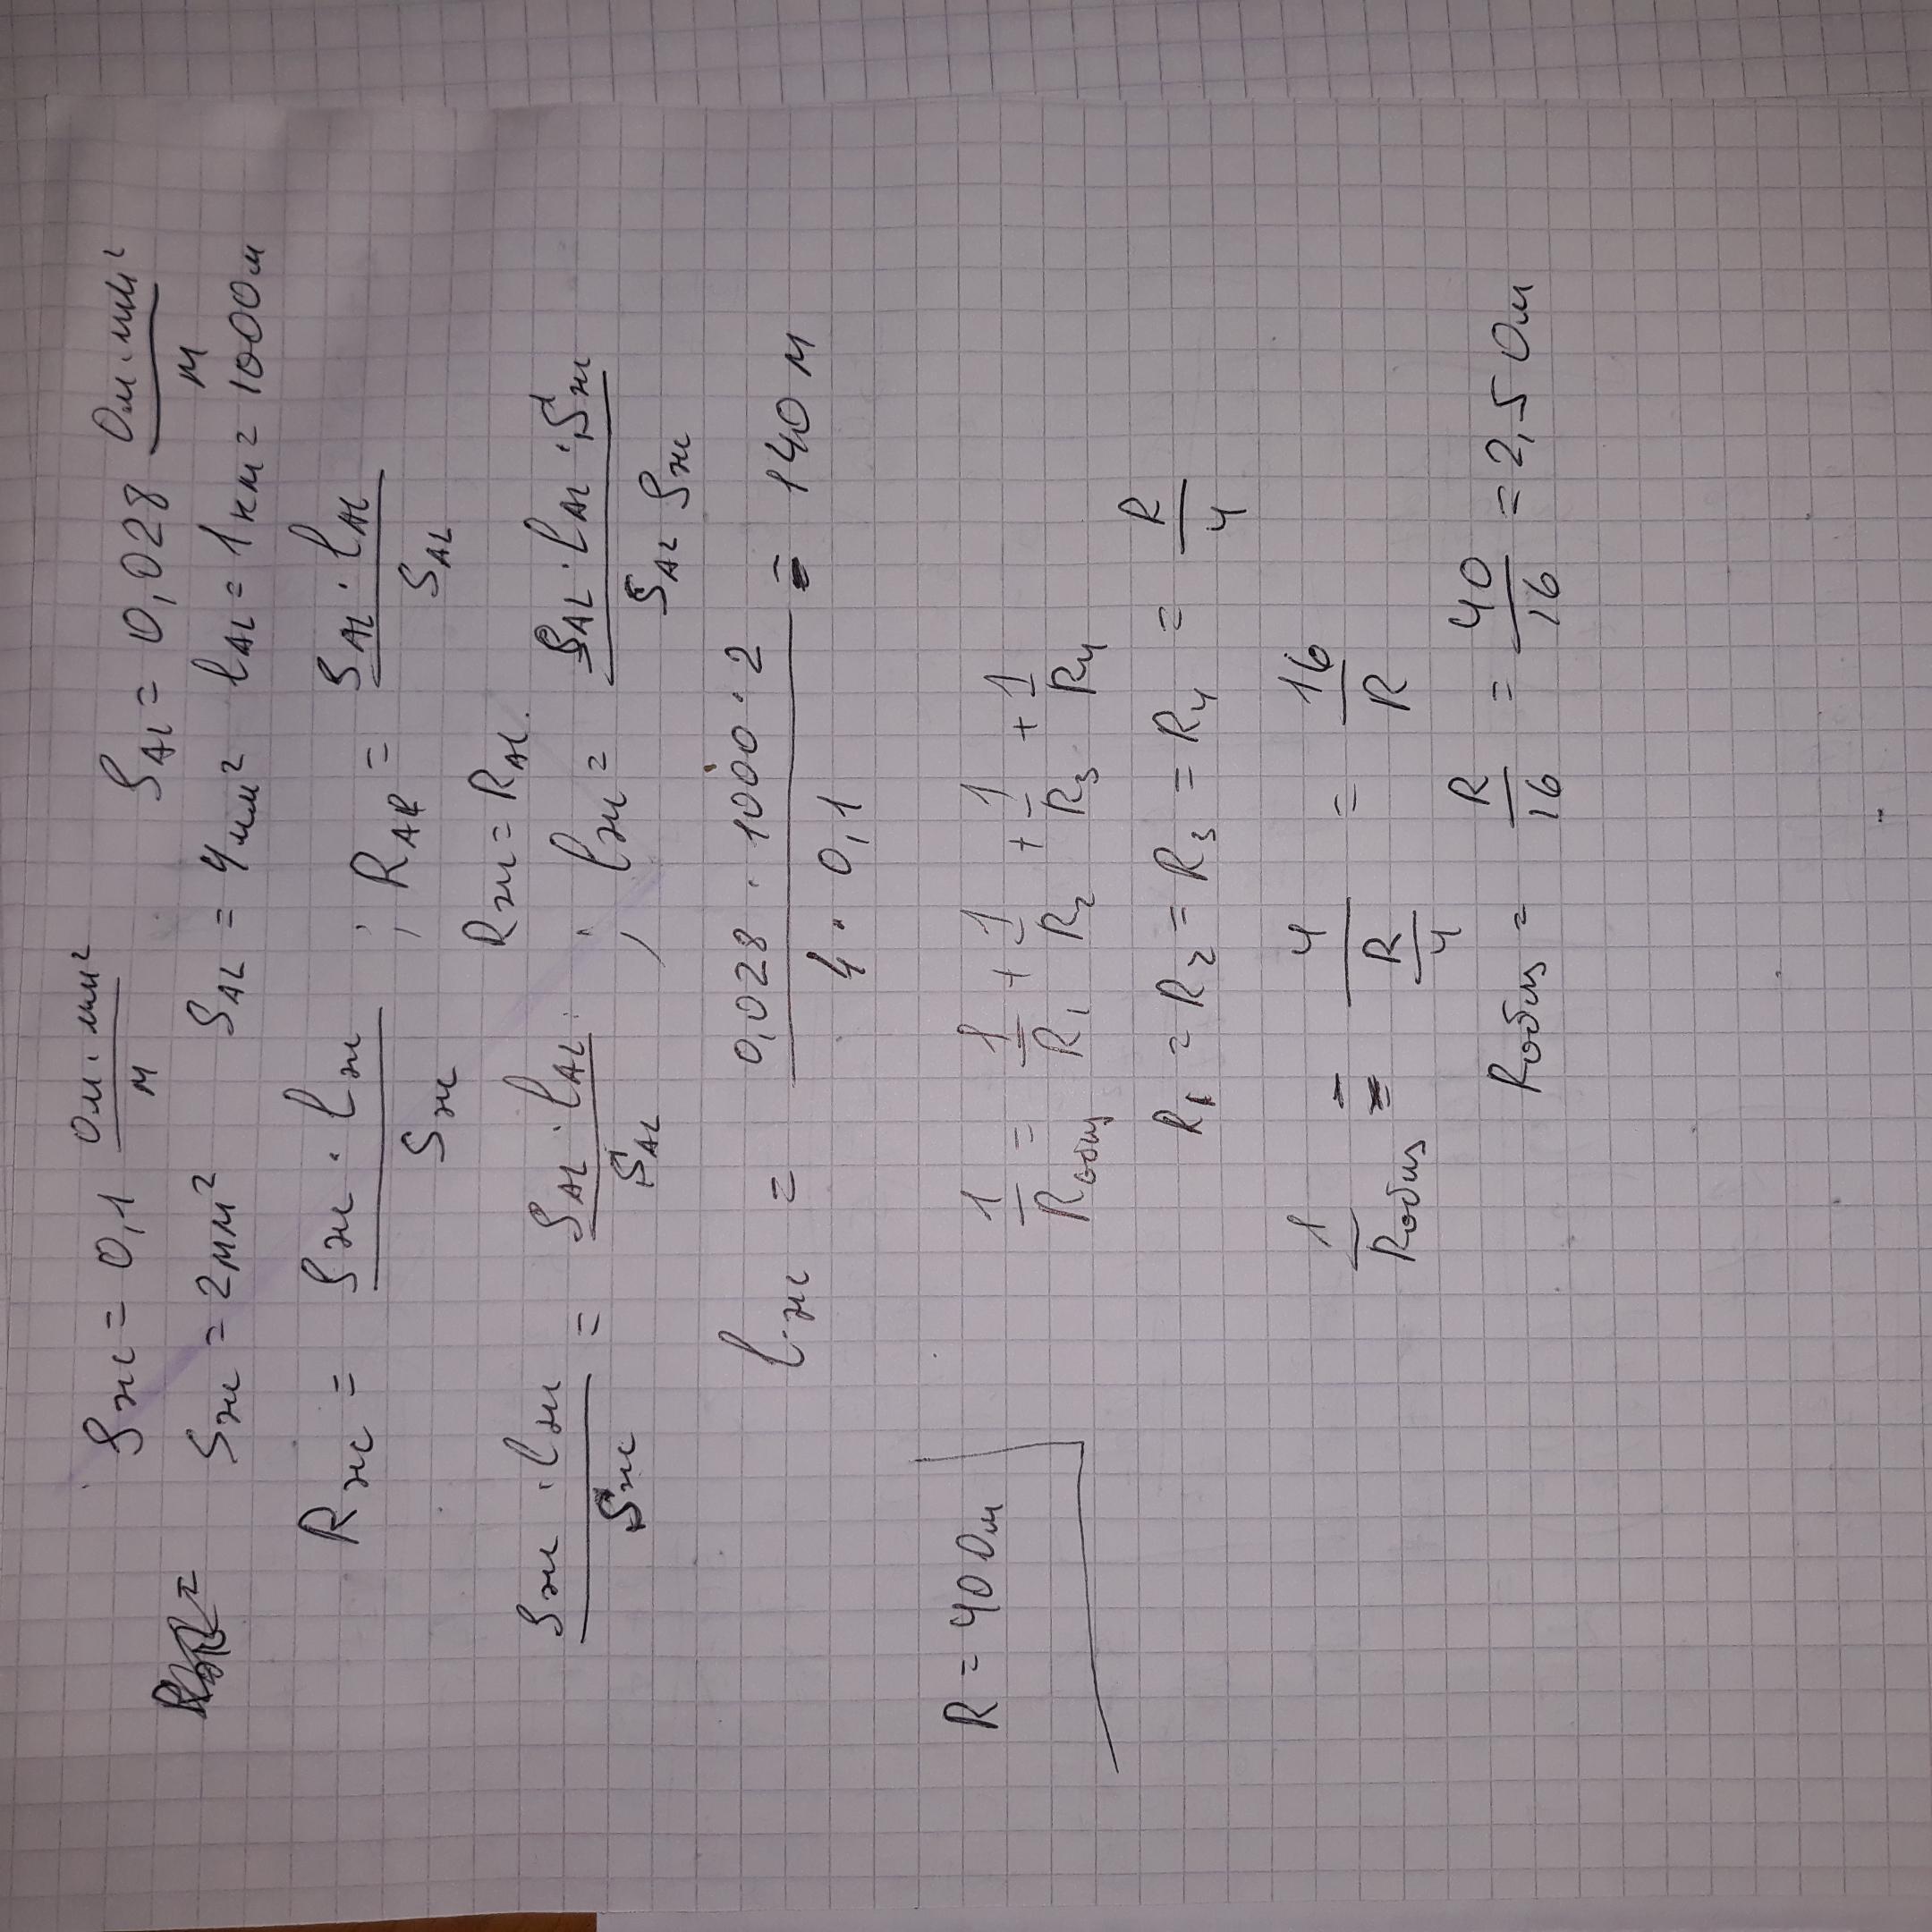 ρж = 0,1 Ом·мм²/м ρAL = 0,028 Ом·мм²/м
Sж = 2мм² SAL = 4мм² lAL = 1км = 1000м
Rж = ρж · lж / Sж ; RAL = ρAL · lAL / SAL
Rж = RAL.
ρж · lж / Sж = ρAL · lAL / SAL ; lж = ρAL · lAL · Sж / SAL ρж
lж = 0,028 · 1000 · 2 / 4 · 0,1 = 140 м
R = 40 Ом
1/Rобщ = 1/R1 + 1/R2 + 1/R3 + 1/R4
R1 = R2 = R3 = R4 = R/4
1/Rобщ = 4/(R/4) = 16/R
Rобщ = R/16 = 40/16 = 2,5 Ом